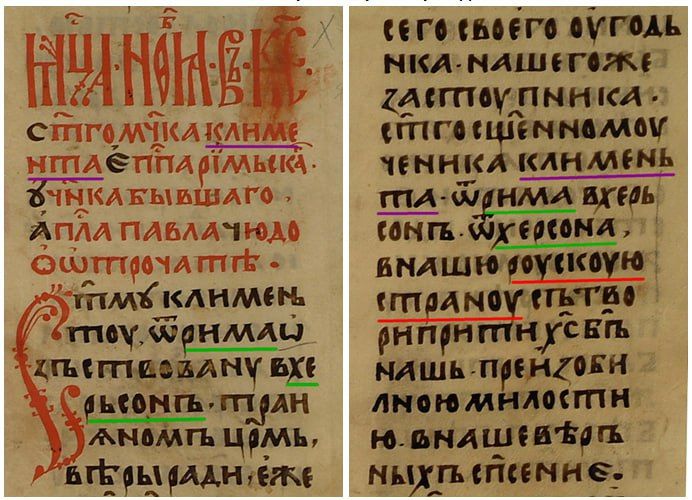 мц҃а · ноѧ · въ · к҃е ·
ст҃го мч҃ка климе
нта еп҃па рі́мьска ·
ꙋчн҃ка бывшаго ,
ап҃ла павла чюдо
ѳ ѡтрочатѣ .
Ст҃мꙋ климень
тоу , ѿ рима ꙩ
зъствовану в хе
рьсонъ . тран
ѧномъ цр҃мь ,
вѣры ради , еже
сего своего оу҆годь
нка · нашегоже
застоупника .
ст҃го сщ҃енномоу
ченика клименьь
та · ѿ рима в херь
сонъ . ѿ херсона ,
в нашю роускоую
страноу сътво
ри прити хс҃ бг҃ъ
нашь . преизоби
лною милости
ю . в наше вѣръ
ныхъ сп҃сение .